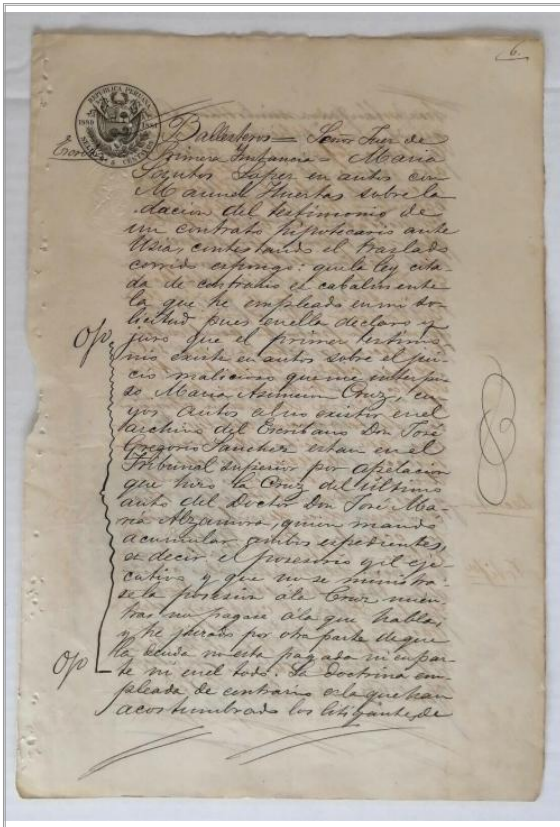 6.
REPUBLICA PERUANA
Ballesteros = Señor Juez de
Primera Instancia = Maria
Santos Lopez en autos con
Manuel Huertas sobre la
dacion del testimonio de
un contrato hipotecario ante
Usia, contestando el traslado
corrido espongo: que la ley cita-
da de contrario es cabalmente
la que he empleado en mi so-
licitud pues en ella declaro y
juro que el primer testimo-
nio existe en autos sobre el jui-
cio malicioso que me interpu-
so Maria Asuncion Cruz, cu-
yos autos al no existir en el
archivo del Escribano Don José
Gregorio Sanchez estan en el
Tribunal superior por apelacion
que hizo la Cruz del último
auto del Doctor Don José Ma-
ria Alzamora, quien mandó
acumular ambos espedientes,
es decir el posesorio y el eje-
cutivo y que no se ministra-
se la posesion á la Cruz mien-
tras no pagase á la que habla,
y he jurado por otra parte de que
la deuda no esta pagada ni en par-
te ni en el todo. La doctrina em-
pleada de contrario es la que han
acostumbrado los litigantes de
Ojo
Ojo